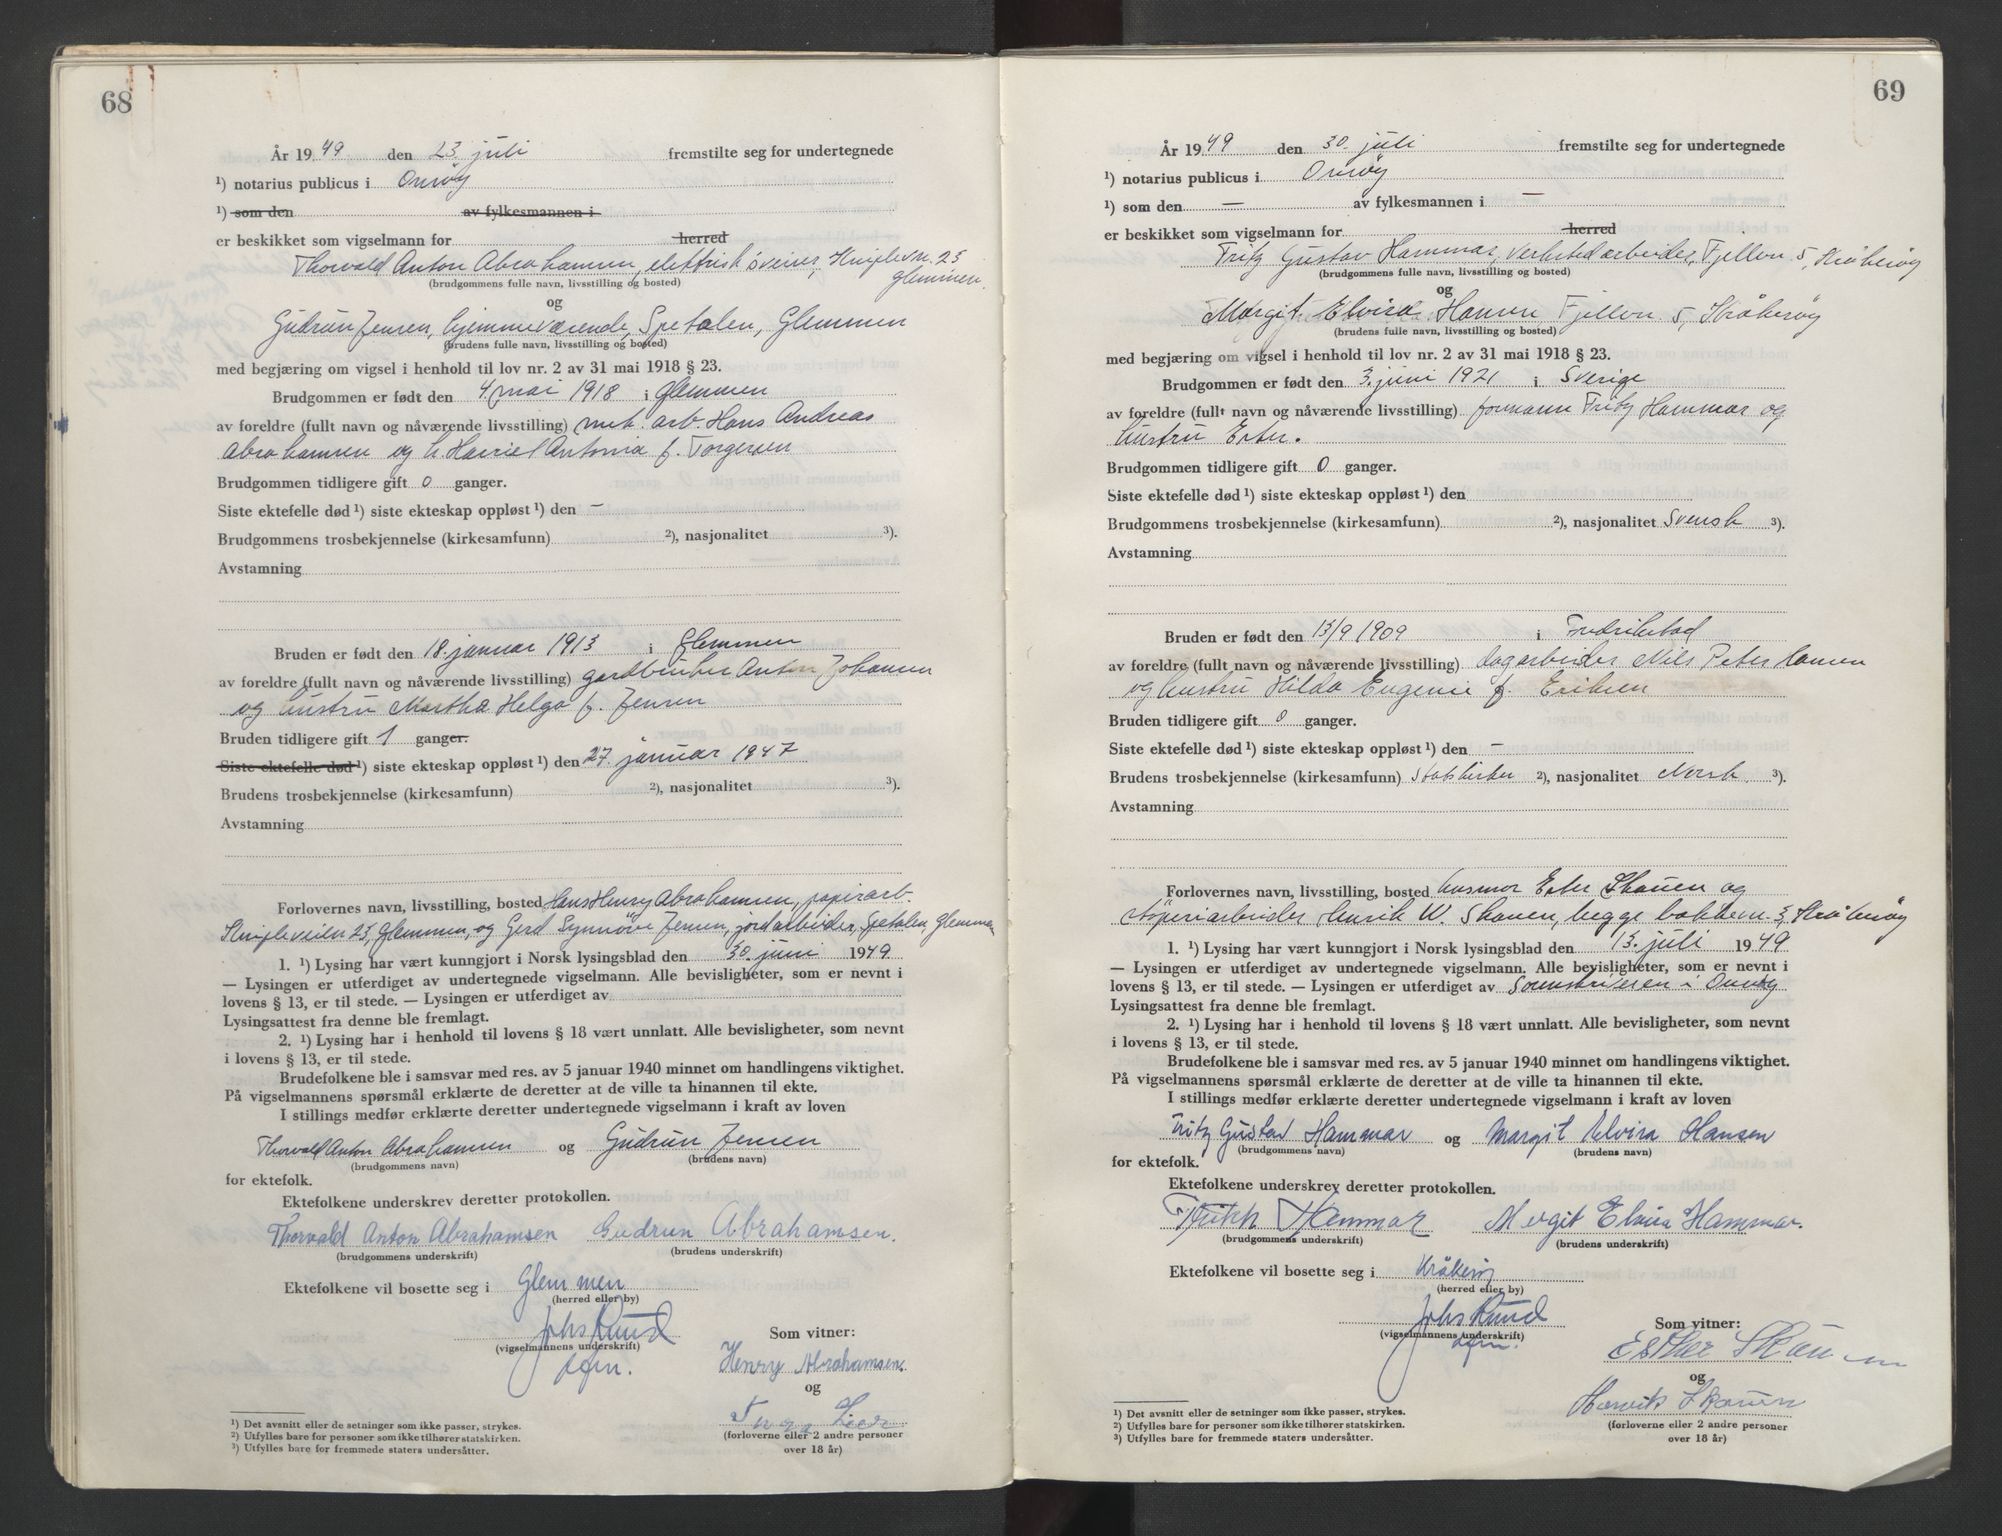 68
År 1949 den 23. juli fremstilte seg for undertegnede
¹) notarius publicus i Onsøy
¹) som den av fylkesmannen i
er beskikket som vigselmann for herred
Thorvald Anton Abrahamsen, elektrisk sveiser, 23
Glemmen.
(brudgommens fulle navn, livsstilling og bosted)
og
Gudrun Jensen, hjemmeværende, Spetalen, Glemmen
(brudens fulle navn, livsstilling og bosted)
med begjæring om vigsel i henhold til lov nr. 2 av 31 mai 1918 § 23.
Brudgommen er født den 4. mai 1918 i Glemmen
av foreldre (fullt navn og nåværende livsstilling) mek. arb. Hans Andreas
Abrahamsen og h. Harriet Antonia f. Torgersen
Brudgommen tidligere gift 0 ganger.
Siste ektefelle død ¹) siste ekteskap oppløst ¹) den –
Brudgommens trosbekjennelse (kirkesamfunn) ²), nasjonalitet ³).
Avstamning
Bruden er født den 18. januar 1913 i Glemmen
av foreldre (fullt navn og nåværende livsstilling) gardbruker Anton Johansen
og hustru Martha Helga f. Jensen
Bruden tidligere gift 1 ganger.
Siste ektefelle død ¹) siste ekteskap oppløst ¹) den 27. januar 1947
Brudens trosbekjennelse (kirkesamfunn) ²), nasjonalitet ³).
Avstamning
Forlovernes navn, livsstilling, bosted Hans Henry Abrahamsen, papirarb.
23, Glemmen, og Gerd Synnøve Jensen, jordarbeider, Spetalen, Glemmen
1. ¹) Lysing har vært kunngjort i Norsk lysingsblad den 30. juni 1949
— Lysingen er utferdiget av undertegnede vigselmann. Alle bevisligheter, som er nevnt i
lovens § 13, er til stede. — Lysingen er utferdiget av
Lysingsattest fra denne ble fremlagt.
2. ¹) Lysing har i henhold til lovens § 18 vært unnlatt. Alle bevisligheter, som nevnt
i lovens § 13, er til stede.
Brudefolkene ble i samsvar med res. av 5 januar 1940 minnet om handlingens viktighet.
På vigselmannens spørsmål erklærte de deretter at de ville ta hinannen til ekte.
I stillings medfør erklærte deretter undertegnede vigselmann i kraft av loven
Thorvald Anton Abrahamsen og Gudrun Jensen
(brudgommens navn) (brudens navn)
for ektefolk.
Ektefolkene underskrev deretter protokollen.
Thorvald Anton Abrahamsen Gudrun Abrahamsen.
(brudgommens underskrift) (brudens underskrift)
Ektefolkene vil bosette seg i Glemmen
(herred eller by)
Johs Ruud
(vigselmannens underskrift)
Som vitner:
Henry Abrahamsen.
og
(forloverne eller 2 andre personer
over 18 år)
¹) Det avsnitt eller de setninger som ikke passer, strykes.
²) Utfylles bare for personer som ikke tilhører statskirken.
³) Utfylles bare for fremmede staters undersåtter.
69
År 1949 den 30. juli fremstilte seg for undertegnede
¹) notarius publicus i Onsøy
¹) som den — av fylkesmannen i —
er beskikket som vigselmann for herred
Fritz Gustav Hammar, verkstedarbeider, Fjellvn. 5, Kråkerøy
(brudgommens fulle navn, livsstilling og bosted)
og
Margit Elvira Hansen, Fjellvn. 5, Kråkerøy
(brudens fulle navn, livsstilling og bosted)
med begjæring om vigsel i henhold til lov nr. 2 av 31 mai 1918 § 23.
Brudgommen er født den 3. juni 1921 i Sverige
av foreldre (fullt navn og nåværende livsstilling) formann Fritz Hammar og
hustru Ester.
Brudgommen tidligere gift 0 ganger.
Siste ektefelle død ¹) siste ekteskap oppløst ¹) den
Brudgommens trosbekjennelse (kirkesamfunn) ²), nasjonalitet Svensk ³).
Avstamning
Bruden er født den 13/9 1909 i Fredrikstad
av foreldre (fullt navn og nåværende livsstilling) dagarbeider Nils Peter Hansen
og hustru Hilda Eugenie f. Eriksen
Bruden tidligere gift 0 ganger.
Siste ektefelle død ¹) siste ekteskap oppløst ¹) den –
Brudens trosbekjennelse (kirkesamfunn) Statskirken ²), nasjonalitet Norsk ³).
Avstamning
Forlovernes navn, livsstilling, bosted husmor Ester Skauen og
støperiarbeider Henrik W. Skauen, begge 3, Kråkerøy
1. ¹) Lysing har vært kunngjort i Norsk lysingsblad den 13. juli 1949
— Lysingen er utferdiget av undertegnede vigselmann. Alle bevisligheter, som er nevnt i
lovens § 13, er til stede. — Lysingen er utferdiget av Sorenskriveren i Onsøy
Lysingsattest fra denne ble fremlagt.
2. ¹) Lysing har i henhold til lovens § 18 vært unnlatt. Alle bevisligheter, som nevnt
i lovens § 13, er til stede.
Brudefolkene ble i samsvar med res. av 5 januar 1940 minnet om handlingens viktighet.
På vigselmannens spørsmål erklærte de deretter at de ville ta hinannen til ekte.
I stillings medfør erklærte deretter undertegnede vigselmann i kraft av loven
Fritz Gustav Hammar og Margit Elvira Hansen
(brudgommens navn) (brudens navn)
for ektefolk.
Ektefolkene underskrev deretter protokollen.
Hammar Margit Elvira Hammar.
(brudgommens underskrift) (brudens underskrift)
Ektefolkene vil bosette seg i Kråkerøy
(herred eller by)
Johs Ruud
(vigselmannens underskrift)
Som vitner:
Esther Skauen
og
Henrik Skauen
(forloverne eller 2 andre personer
over 18 år)
¹) Det avsnitt eller de setninger som ikke passer, strykes.
²) Utfylles bare for personer som ikke tilhører statskirken.
³) Utfylles bare for fremmede staters undersåtter.